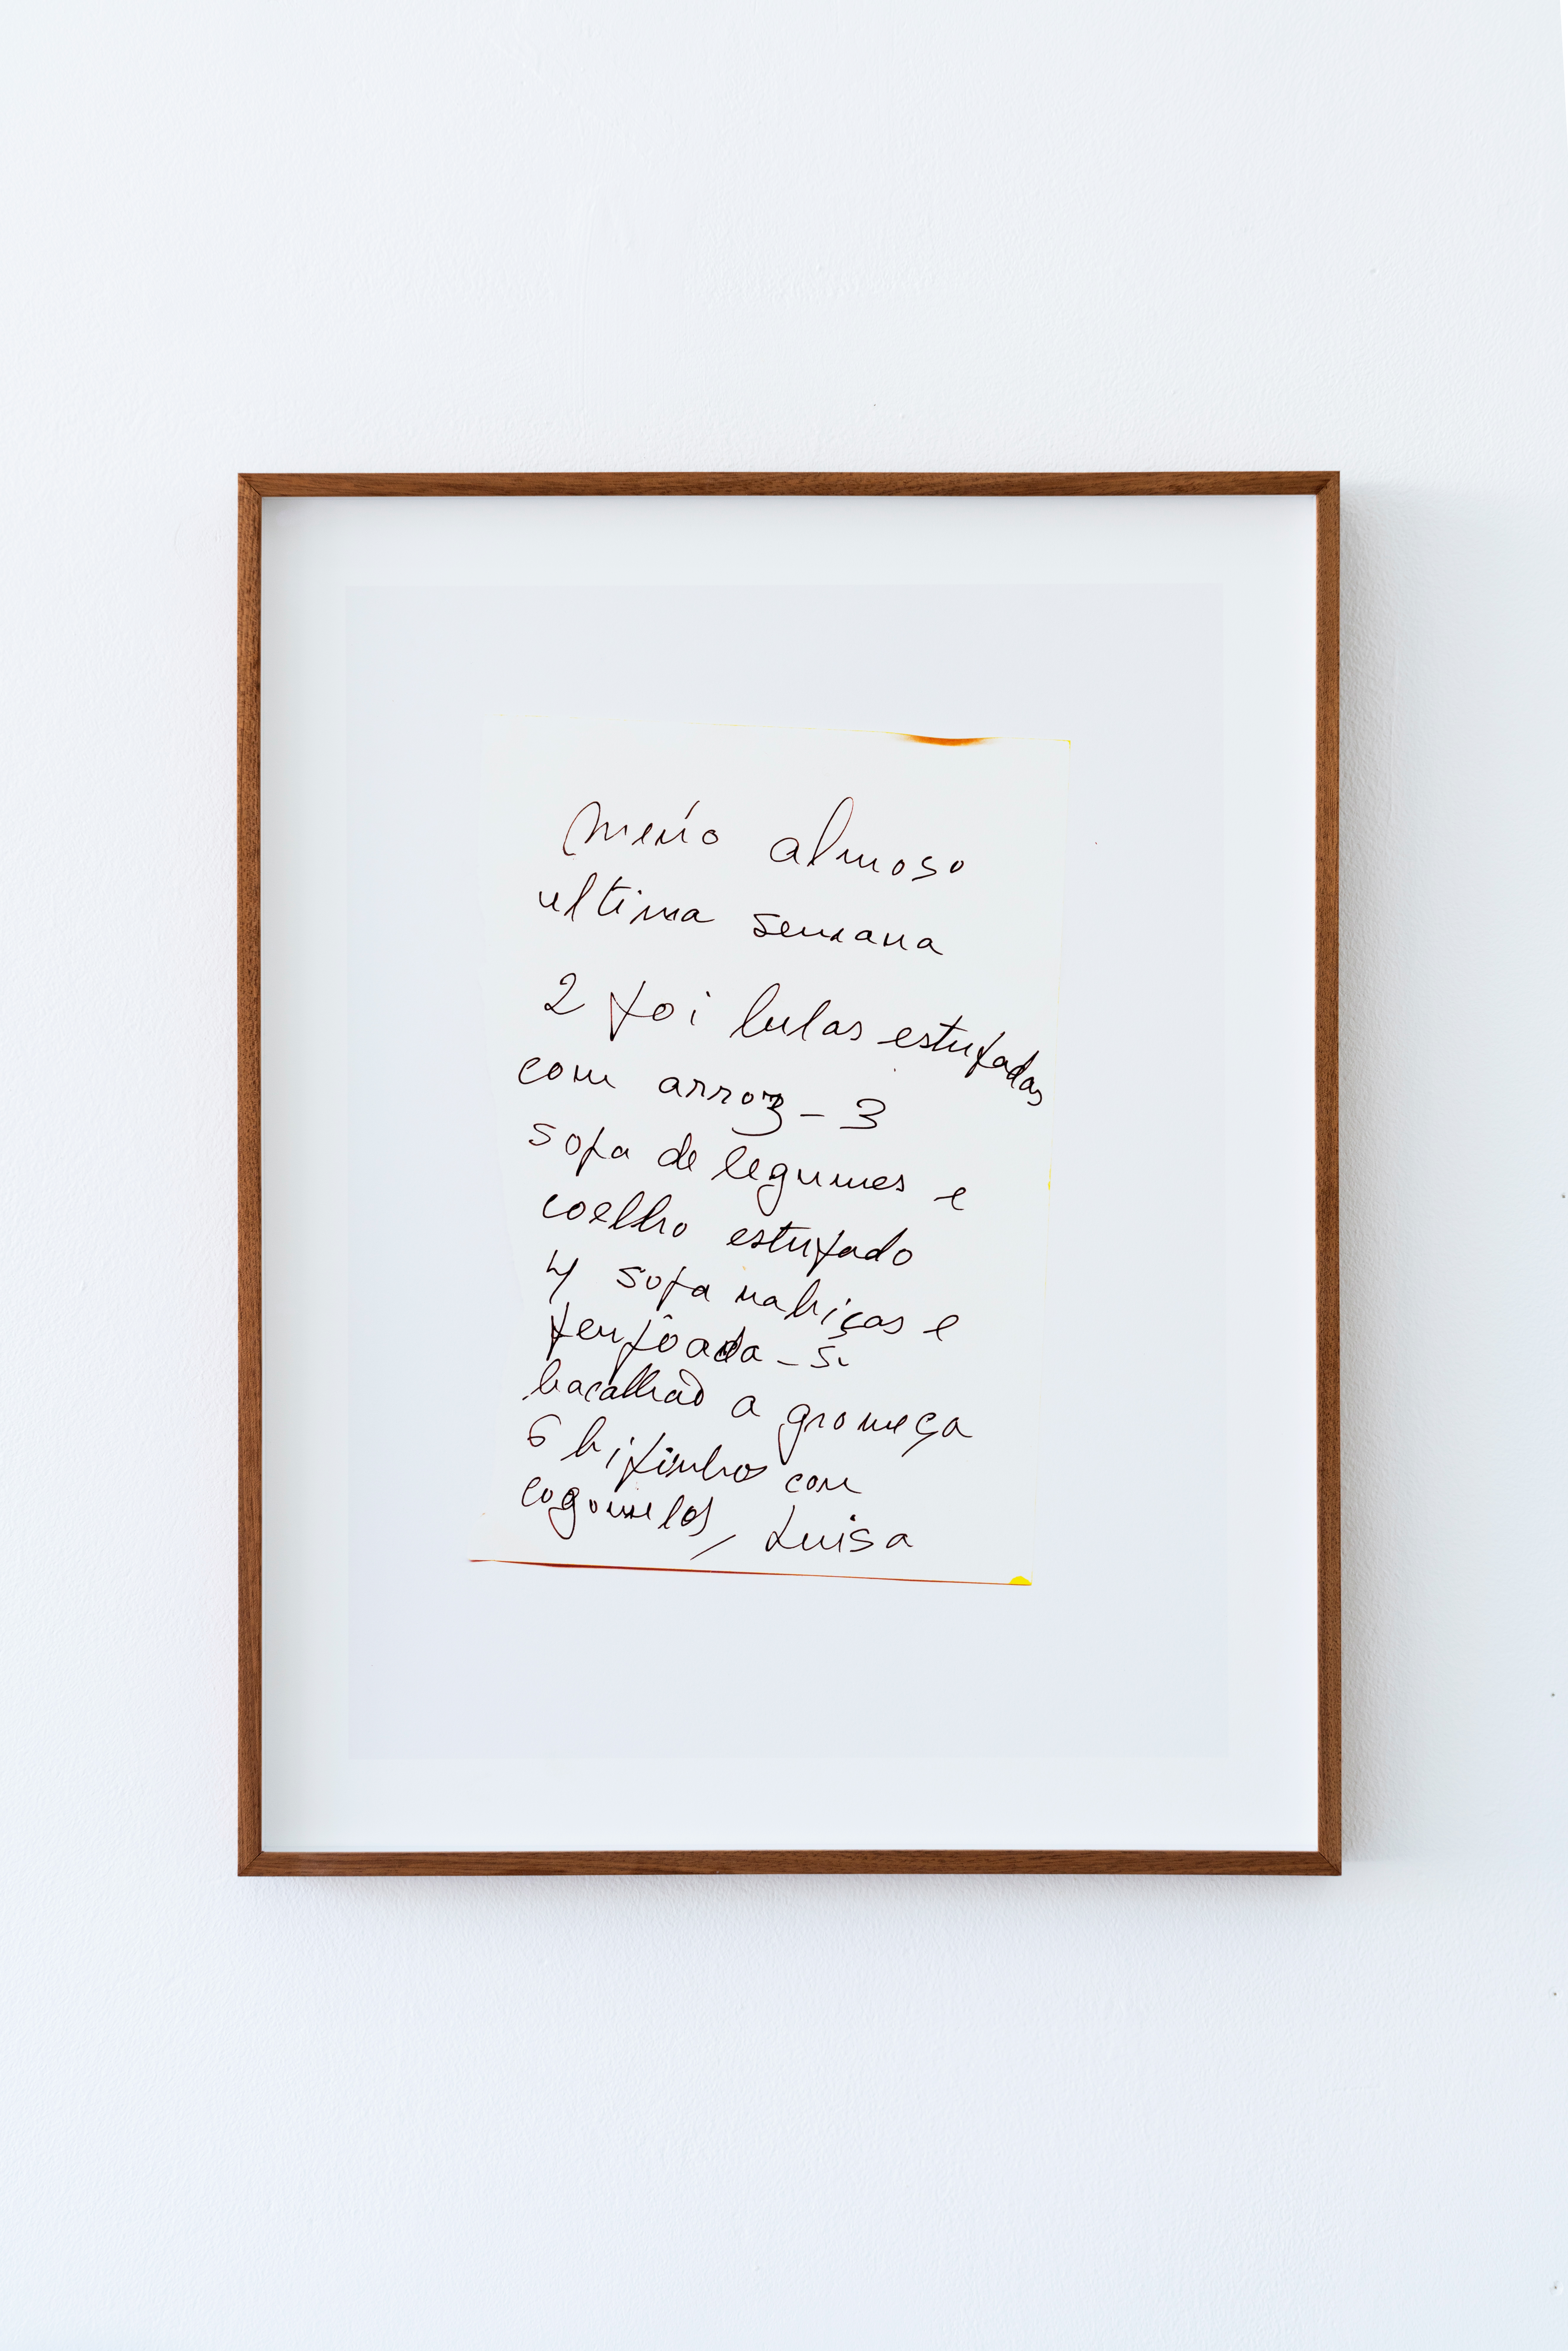 menú almoso
ultima semana
2 foi lulas estufadas
com arroz - 3
sopa de legumes e
coelho estufado
4 sopa nabiças e
feijôada - 5
bacalhao a gromeça
6 bifinhos com
cogomelos, Luisa